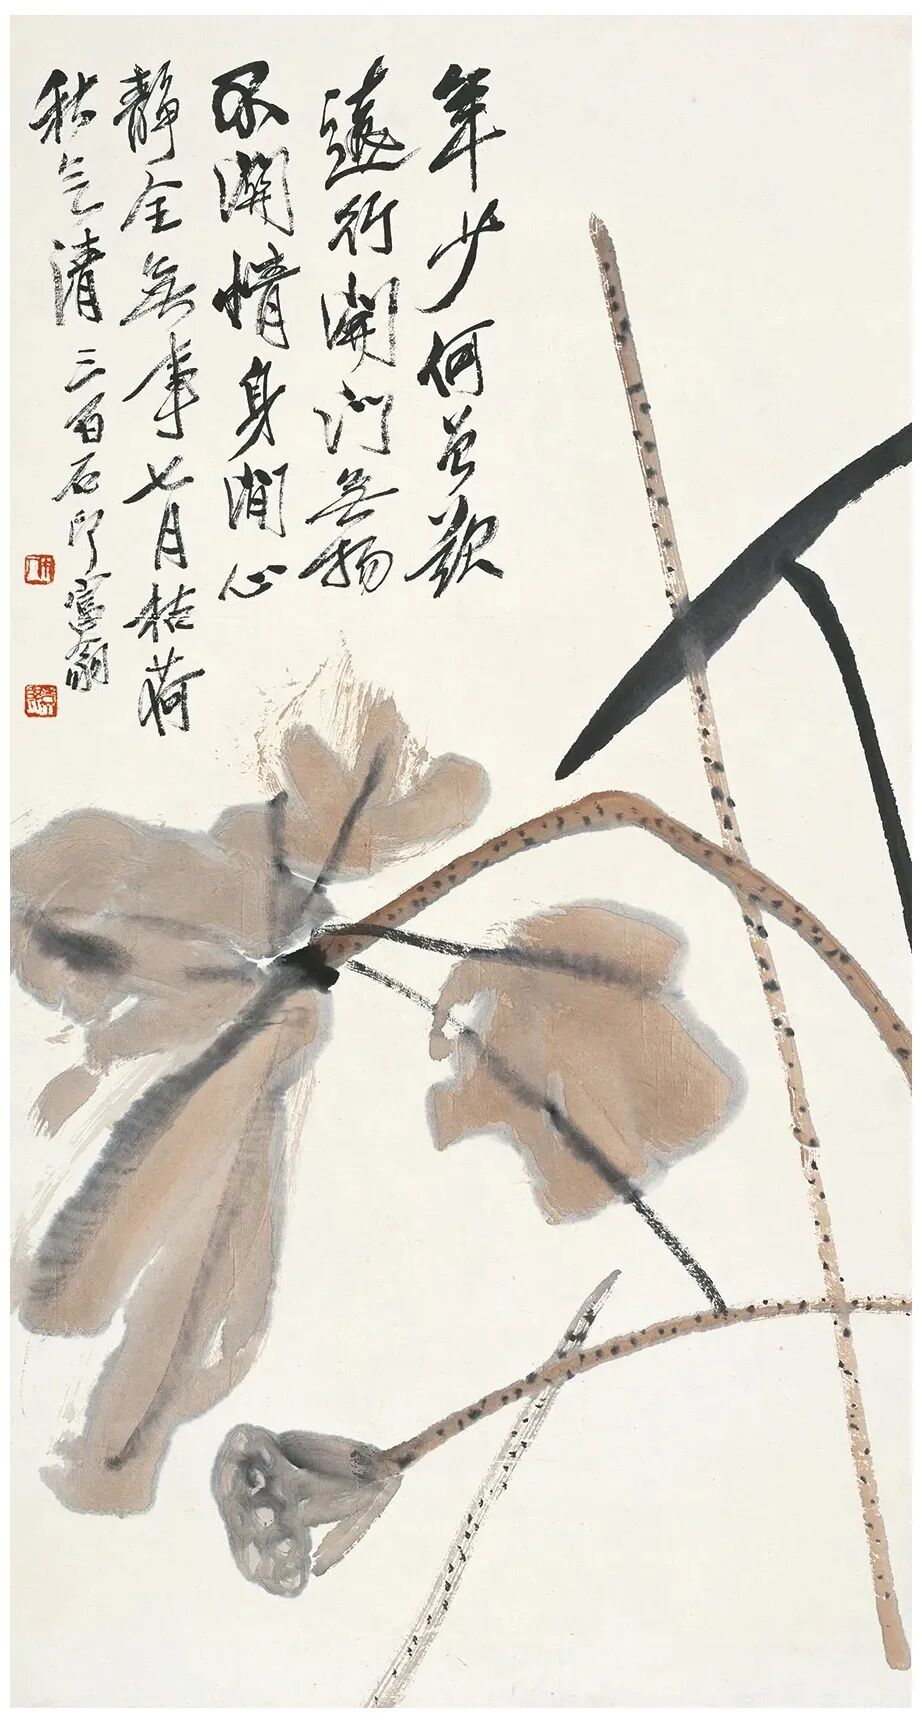 年少何曾歎
遠行開門無物
不關情身閒心
靜全無事七月枯荷
秋气清 三百石印富翁